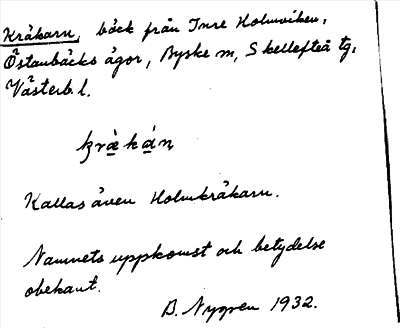 Kråkarn, bäck från Inre Holmviken,
Östanbäcks ägor, Byske sn, Skellefteå tg,
Västerb. l.
Kallas även Holmkråkarn.
Namnets uppkomst och betydelse
obekant.
B. Nygren 1932.